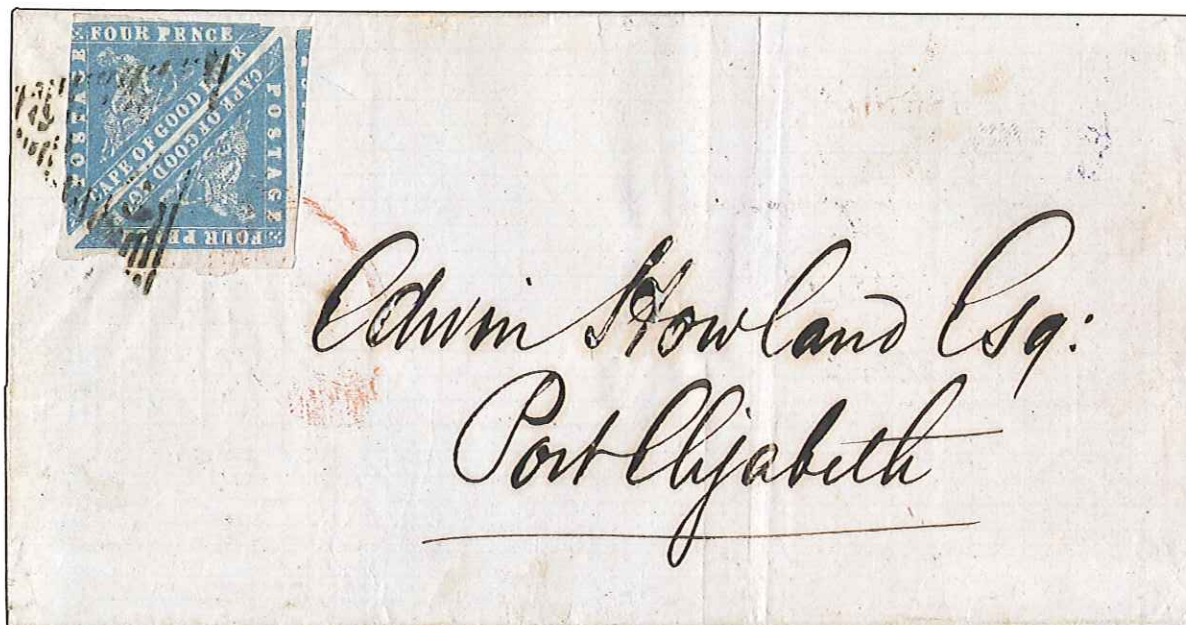 FOUR PENCE
POSTAGE
CAPE OF GOOD HOPE
CAPE OF GOOD HOPE
POSTAGE
FOUR PENCE
Edwin Howland Esq:
Port Elizabeth